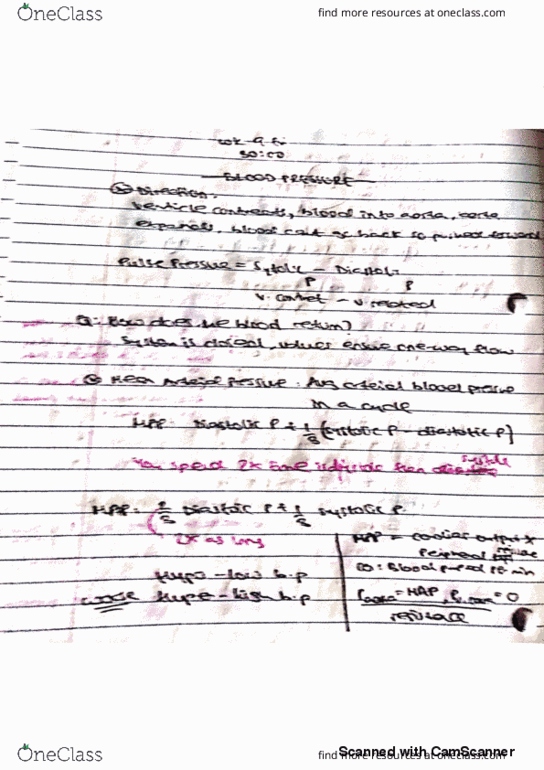 OneClass
find more resources at oneclass.com
BLOOD PRESSURE
Direction.
Ventricle contracts, blood into aorta, aorta
expands, blood can't go back so pushed forward
Pulse Pressure = Systolic - Diastolic
P P
V. contract - V. relaxed
Q: How does the blood return?
System is closed, valves ensure one-way flow
Mean Arterial pressure: Avg arterial blood pressure
in a cycle
MAP: Diastolic P + 1/3 [systolic P - diastolic P]
You spend 2x time in diastolic than systole
MAP: 2/3 Diastolic P + 1/3 Systolic P.
2x as long
MAP = cardiac output x
Peripheral
Hypo - low b.p
CO: Blood pumped per min
worse Hyper - high b.p
= MAP, = 0
resistance
OneClass
find more resources at oneclass.com
Scanned with CamScanner